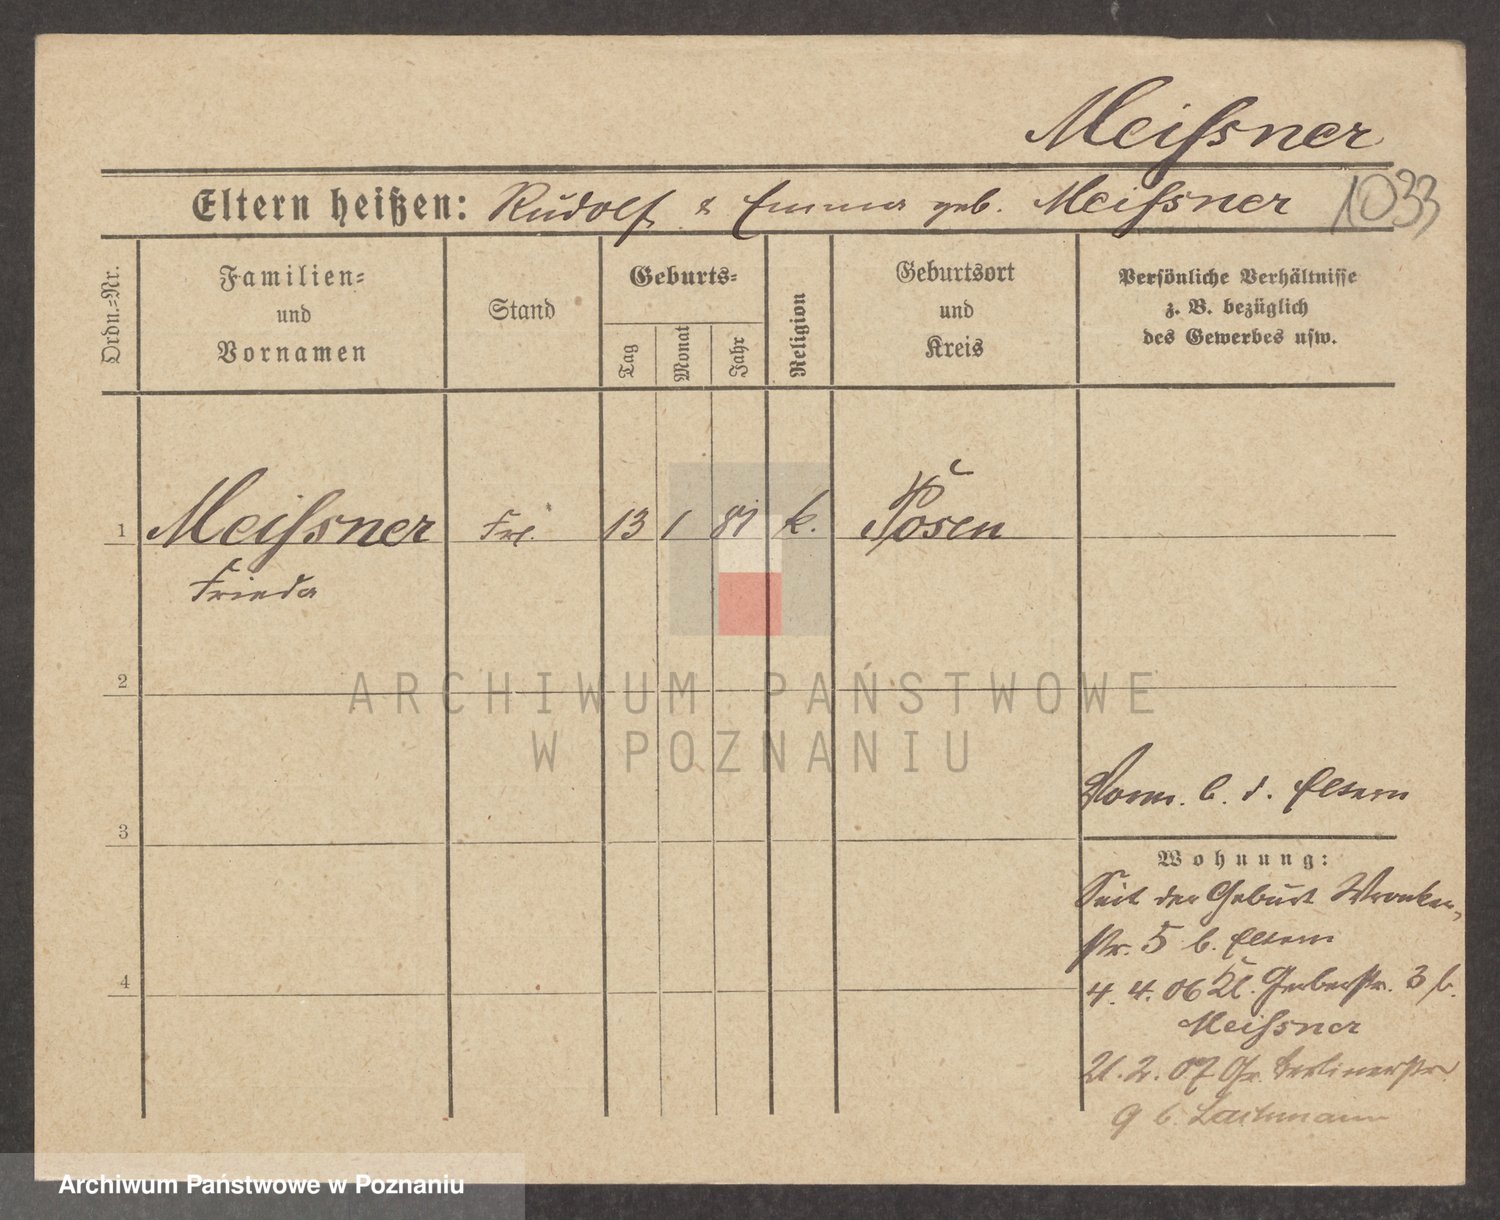 Meißner
Eltern heißen: Rudolf & Emma geb. Meißner 1033
Ordn.-Nr.
Familien-
und
Vornamen
Stand
Geburts-
Tag
Monat
Jahr
Religion
Geburtsort
und
Kreis
Persönliche Verhältnisse
z. B. bezüglich
des Gewerbes usw.
1 Meißner Frl. 13 1 81 k. Posen
Frieda
2
ARCHIWUM PAŃSTWOWE
W POZNANIU
b. d. Eltern
3
Wohnung:
Seit der Geburt Wronker-
str. 5 b. Eltern
4
4. 4. 06 Kl. Gerberstr. 3 b.
Meißner
21. 2. 07 Gr. Berlinerstr.
9 b.
Archiwum Państwowe w Poznaniu